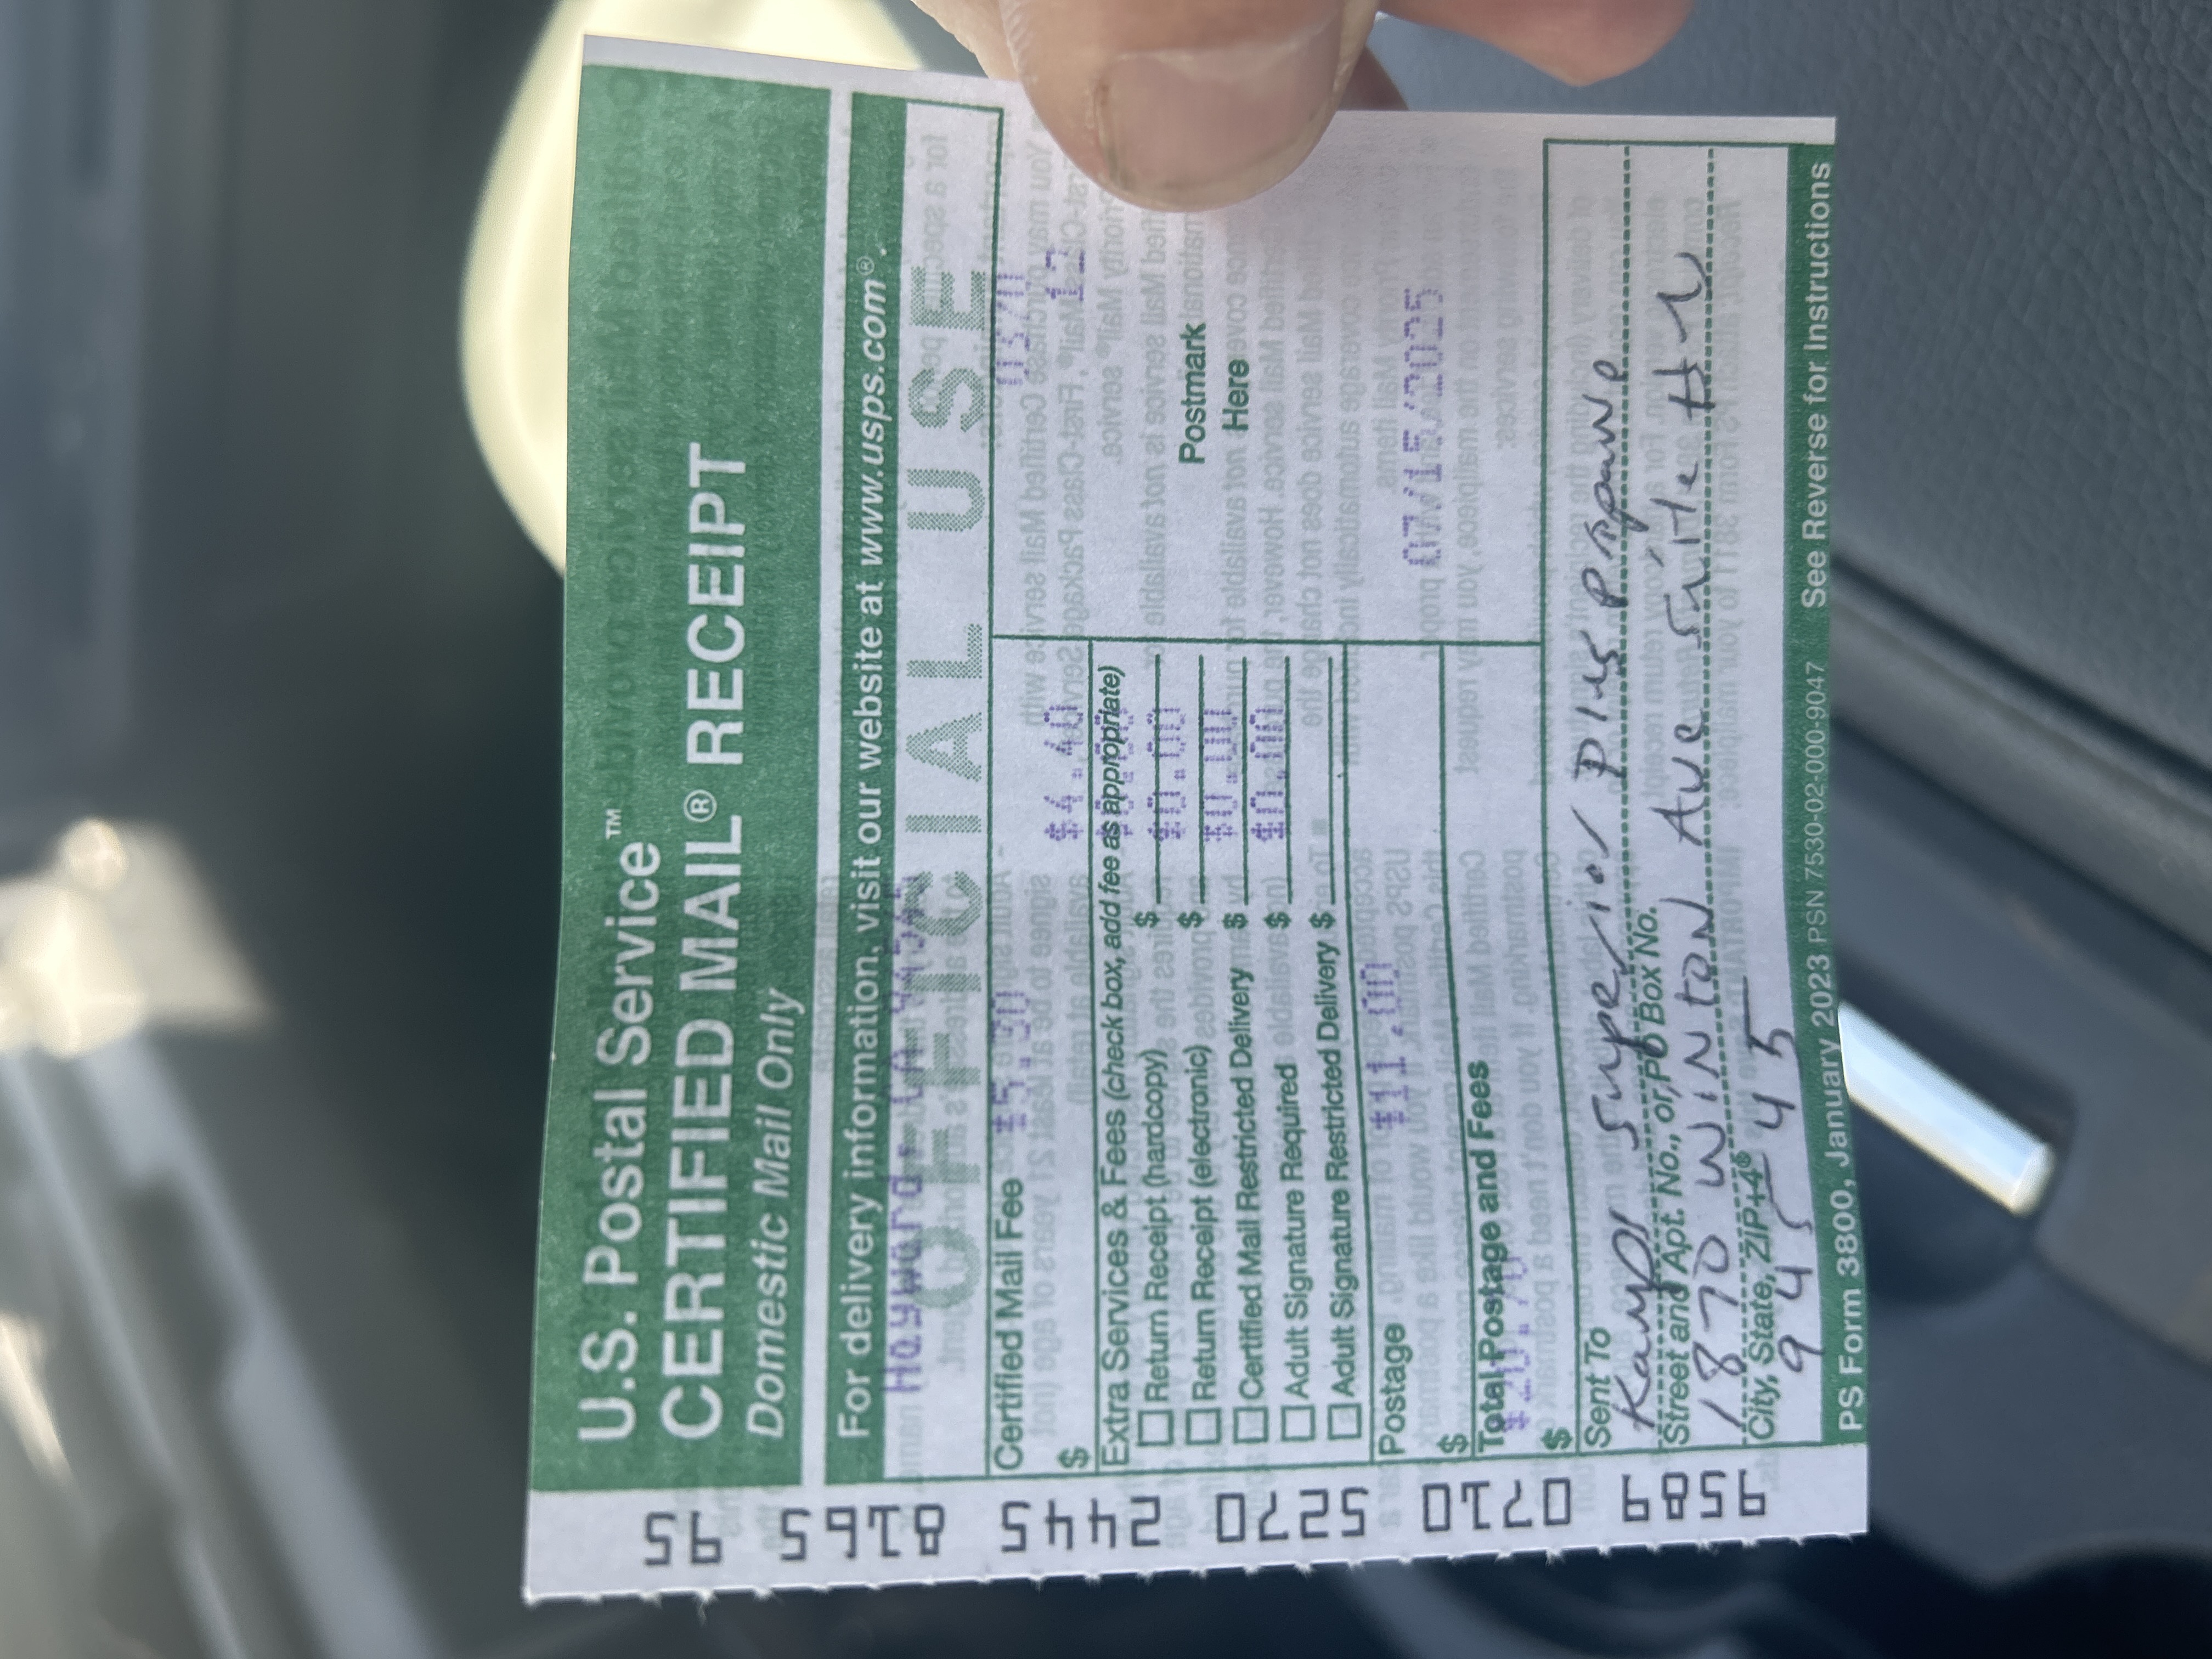 U.S. Postal Service™
CERTIFIED MAIL® RECEIPT
Domestic Mail Only
For delivery information, visit our website at www.usps.com®.
Hayward, CA 94545
OFFICIAL USE
Certified Mail Fee $5.30
$
$4.40
0370
12
Extra Services & Fees (check box, add fee as appropriate)
Return Receipt (hardcopy) $ $0.00
Return Receipt (electronic) $ $0.00
Certified Mail Restricted Delivery $ $0.00
Adult Signature Required $ $0.00
Adult Signature Restricted Delivery $
Postmark
Here
Postage $11.00
$
07/15/2025
Total Postage and Fees
$20.70
$
Sent To
Kamps Superior Plus Propane
Street and Apt. No., or PO Box No.
1870 WINTON Ave Suite #
City, State, ZIP+4®
94545
PS Form 3800, January 2023 PSN 7530-02-000-9047 See Reverse for Instructions
9589 0710 5270 2445 8165 95